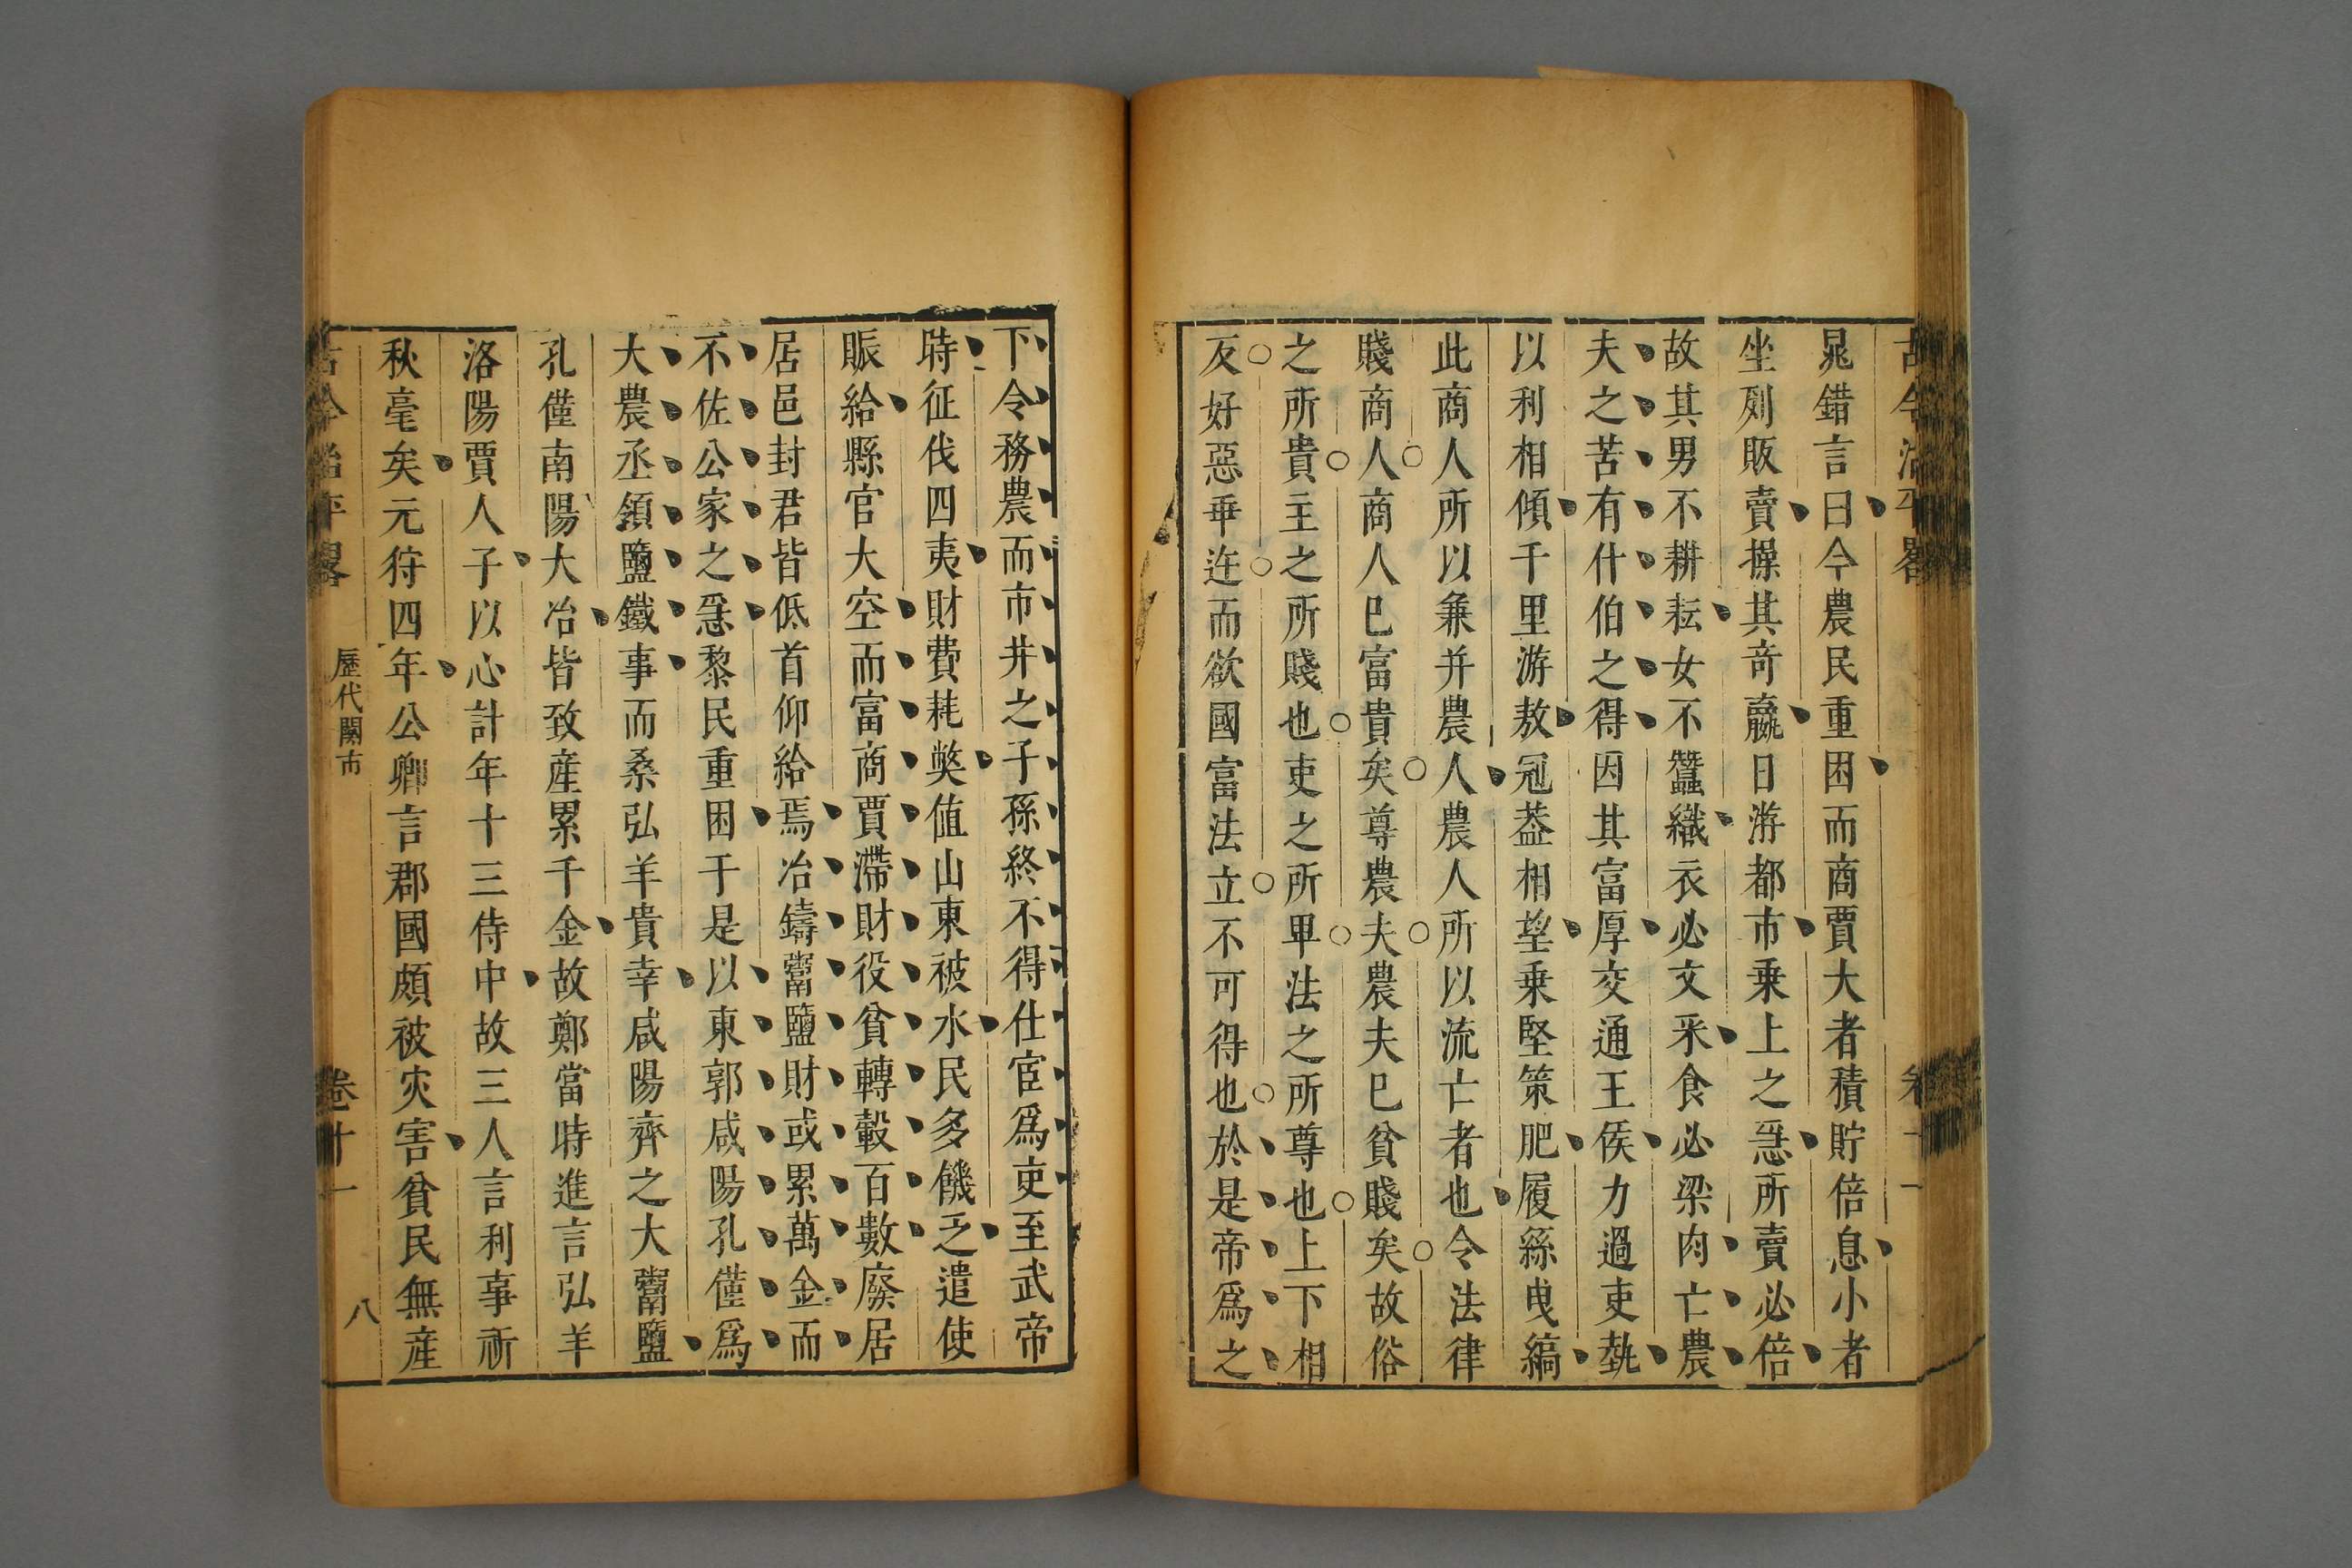 古今治平畧
卷十一
晁錯言曰今農民重困而商賈大者積貯倍息小者
坐列販賣操其竒贏日游都市乗上之急所賣必倍
故其男不耕耘女不蠶織衣必文采食必梁肉亡農
夫之苦有什伯之得因其富厚交通王侯力過吏埶
以利相傾千里游敖冠葢相望乗堅策肥履絲曵縞
此商人所以兼并農人農人所以流亡者也令法律
賤商人商人巳富貴矣尊農夫農夫巳貧賤矣故俗
之所貴主之所賤也吏之所卑法之所尊也上下相
反好惡乖迕而欲國富法立不可得也於是帝爲之
下令務農而市井之子孫終不得仕宦爲吏至武帝
時征伐四夷財費耗獘值山東被水民多饑乏遣使
賑給縣官大空而富商賈滯財役貧轉轂百數廢居
居邑封君皆低首仰給焉冶鑄鬻鹽財或累萬金而
不佐公家之急黎民重困于是以東郭咸陽孔僅爲
大農丞領鹽鐵事而桑弘羊貴幸咸陽齊之大鬻鹽
孔僅南陽大冶皆致産累千金故鄭當時進言弘羊
洛陽賈人子以心計年十三侍中故三人言利事析
秋毫矣元狩四年公卿言郡國頗被灾害貧民無産
古今治平畧
歷代關市
卷十一
八